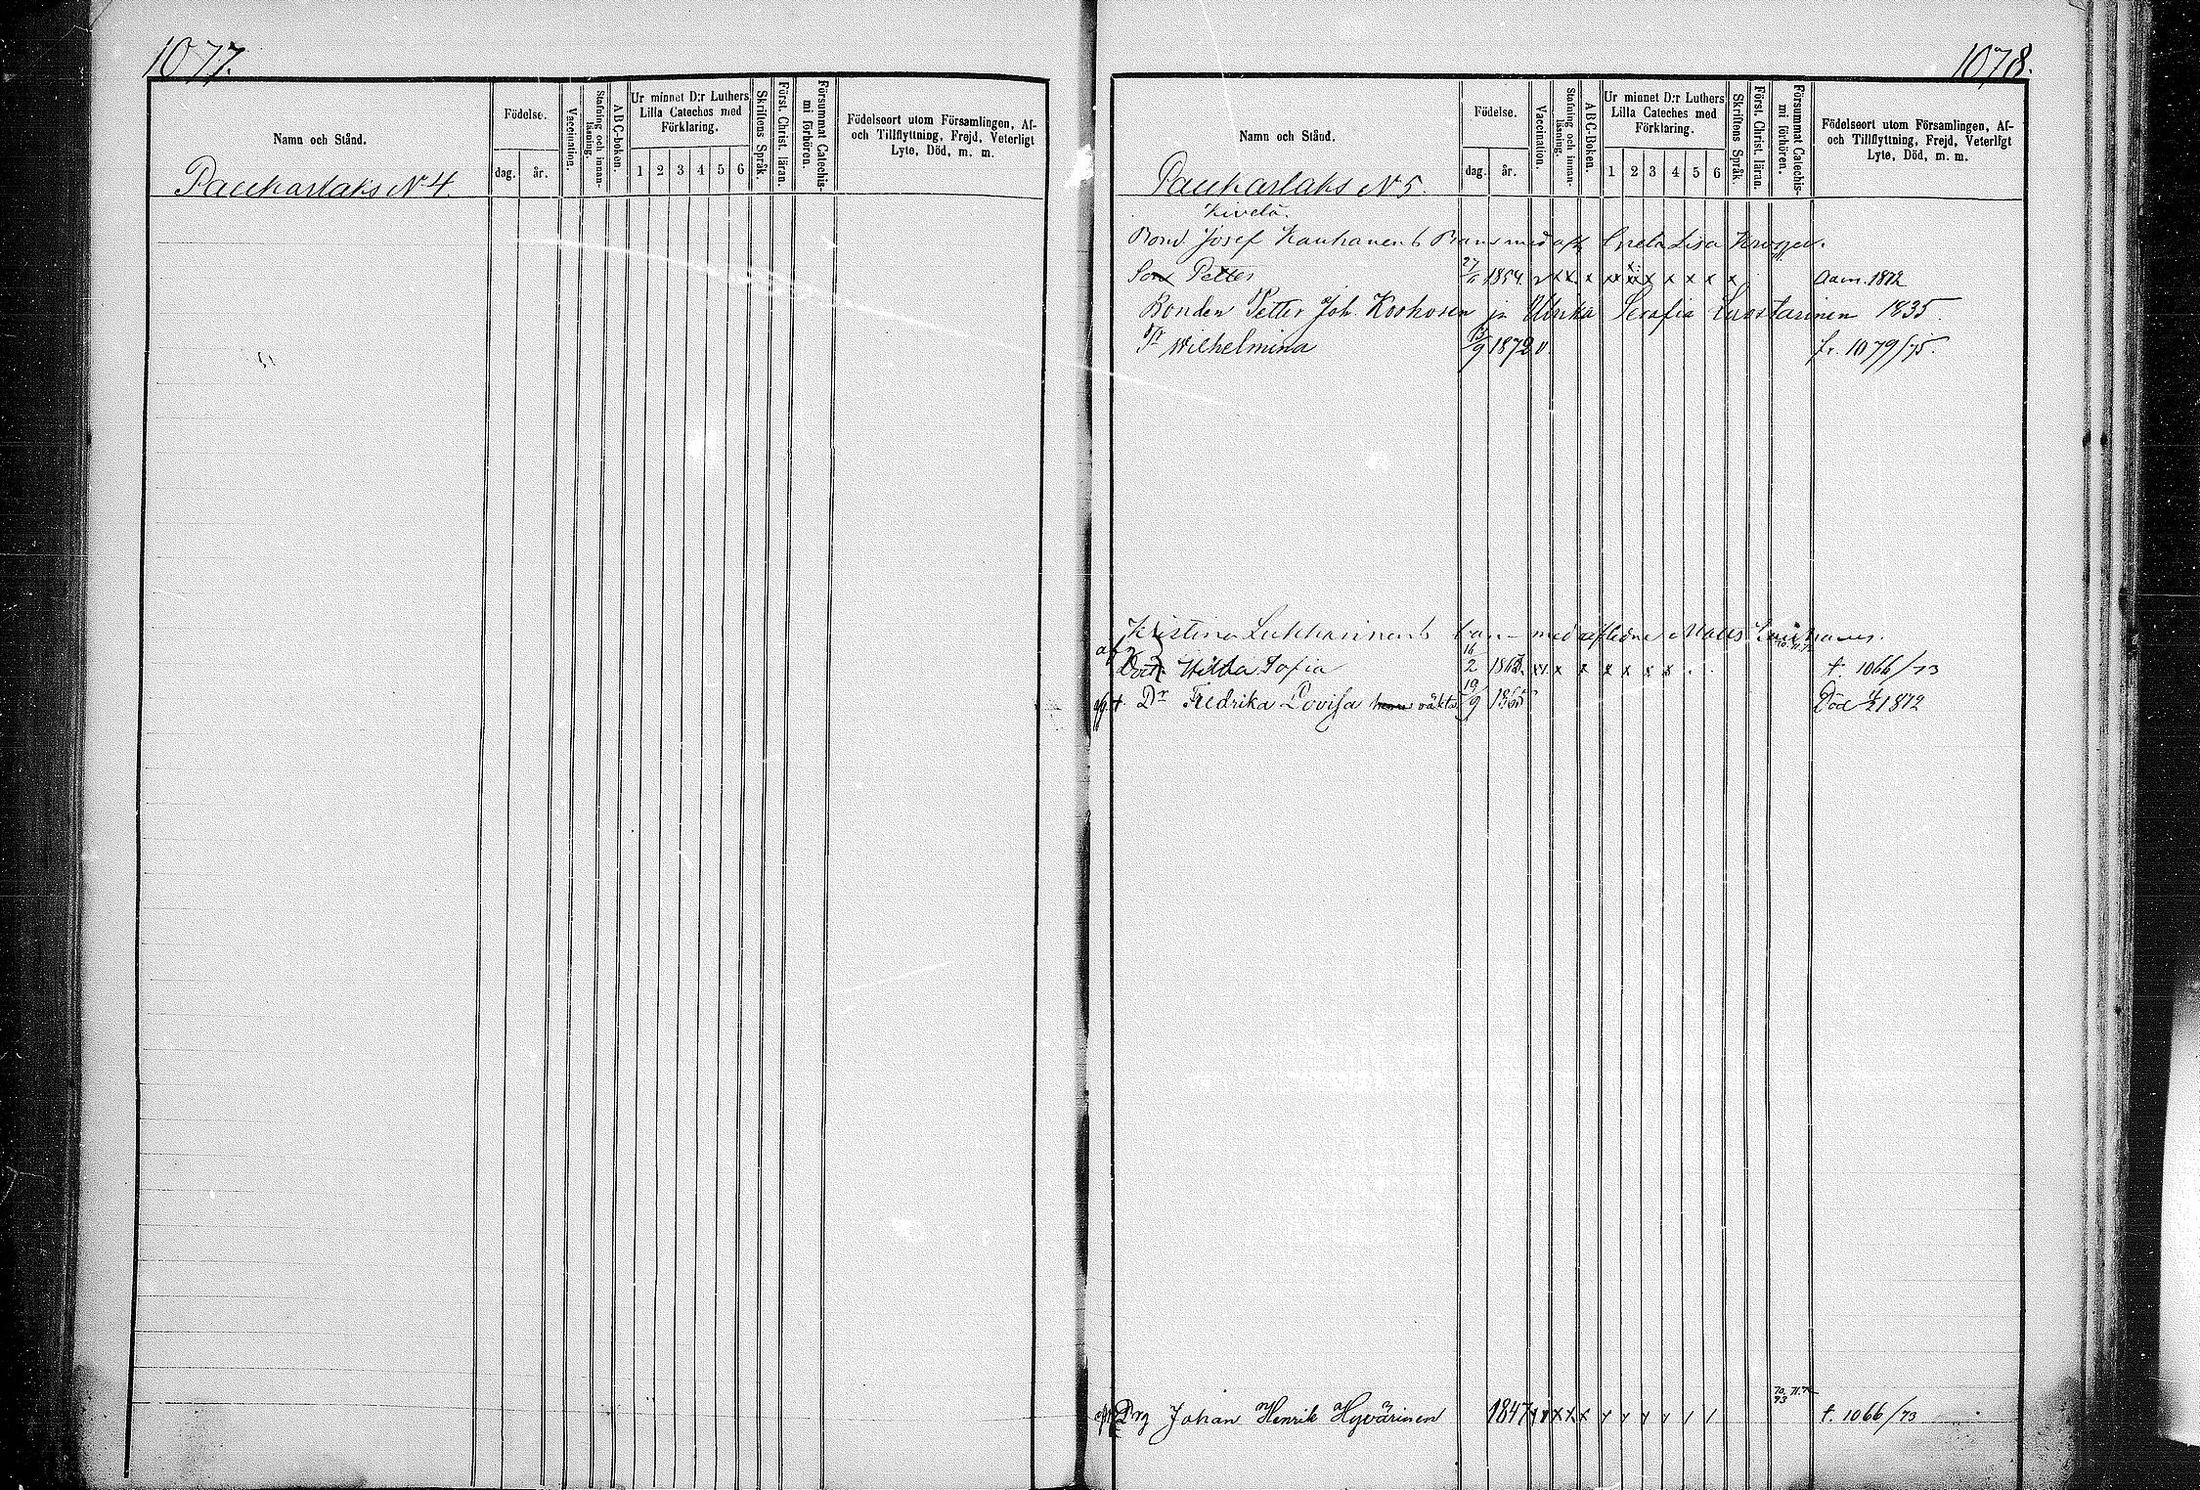 1077.
Namn och Stånd.
Födelse.
dag. år.
Vaccination.
Stafning och innanläsning.
ABC-boken.
Ur minnet D:r Luthers Lilla Cateches med Förklaring.
1 2 3 4 5 6
Skriftens Språk.
Först. Christ. läran.
Försummat Catechismi förhören.
Födelseort utom Församlingen, Af- och Tillflyttning, Frejd, Veterligt Lyte, Död, m. m.
Paukarlaks N 4
1078.
Namn och Stånd.
Födelse.
dag. år.
Vaccination.
Stafning och innanläsning.
ABC-boken.
Ur minnet D:r Luthers Lilla Cateches med Förklaring.
1 2 3 4 5 6
Skriftens Språk.
Först. Christ. läran.
Försummat Catechismi förhören.
Födelseort utom Församlingen, Af- och Tillflyttning, Frejd, Veterligt Lyte, Död, m. m.
Paukarlaks N 5.
Kivelä.
Bond Josef Kauhanens Barn med afl Greta Lisa
Son Petter 1854. v x x x x x x x x x x 1872
Bonden Petter Joh. Koskosen ja Ulrika Serafia Luostarinen 1835
Dr Wilhelmina 13/9 1872 v. fr. 1079/75.
Kristina Lukkarinens barn med aflidne Matts Kauhanen.
Dott. Hilda Sofia 16/2 x x x x x x x t. 1066/73
+ Dr Fredrika Lovisa 19/9 1865 Död 1872
Drg Johan Henrik Hyvärinen 1847 x x x x t. 1066/73